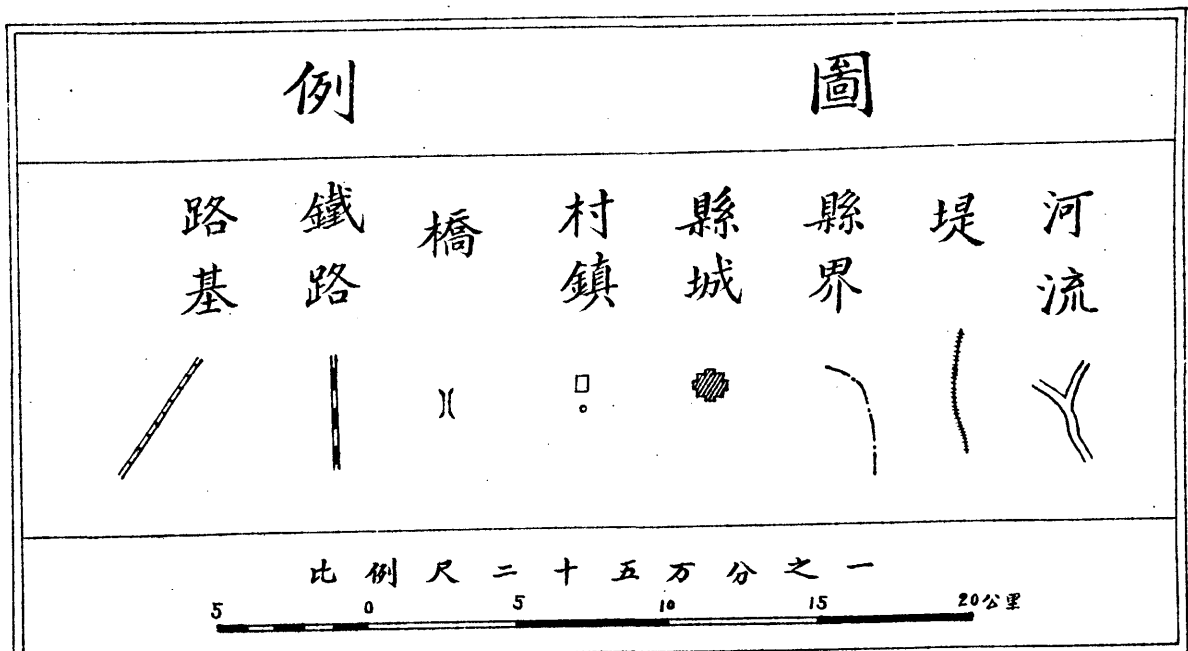 圖例
河流
堤
縣界
縣城
村鎮
橋
鐵路
路基
比例尺二十五万分之一
5 0 5 10 15 20公里